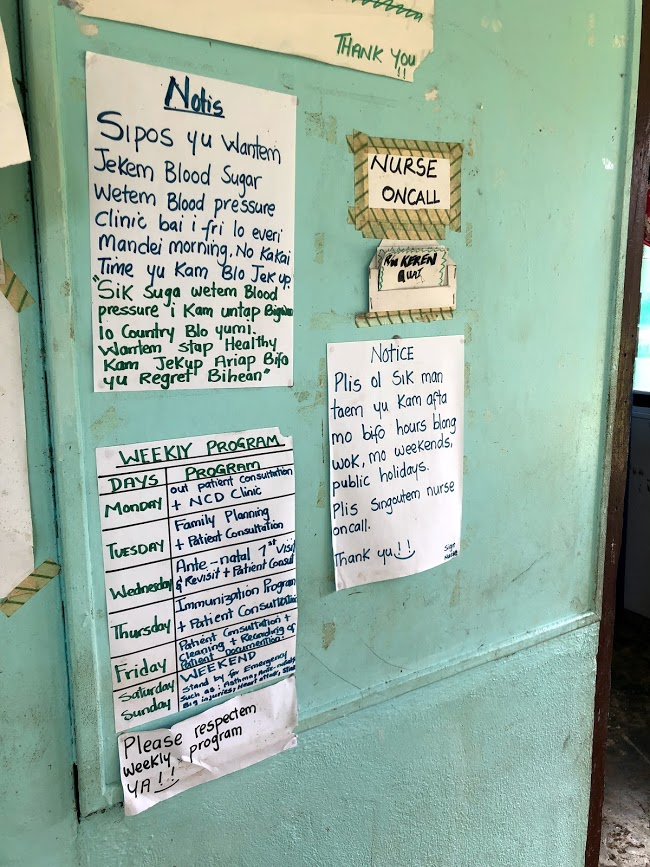 THANK YOU!!
Notis
Sipos yu Wantem
Jekem Blood Sugar
Wetem Blood pressure
Clinic bai i fri lo everi
Mandei morning, No Kakai
Time yu Kam Blo Jek up.
"Sik Suga wetem Blood
pressure i Kam untap Bigwan
lo Country Blo yumi.
Wantem stap Healthy
Kam Jekup Ariap Bifo
yu Regret Bihean"
NURSE
ONCALL
KEREN
NOTICE
Plis ol Sik man
taem yu Kam afta
mo bifo hours blong
wok, mo weekends,
public holidays.
Plis Singoutem nurse
oncall.
Thank yu!!
WEEKLY PROGRAM
DAYS PROGRAM
MONDAY out patient consultation
+ NCD Clinic
TUESDAY Family Planning
+ Patient Consultation
Wednesday Ante-natal 1st Visit
& Revisit + Patient Consult
Thursday Immunization Program
+ Patient Consultation
Friday Patient Consultation +
Cleaning + Recording of
Patient Documention
Saturday WEEKEND
Sunday Stand by for Emergency
Such as: Asthma, Ante-natal,
Big injuries, Heart attack,
Please respectem
weekly program
YA!!